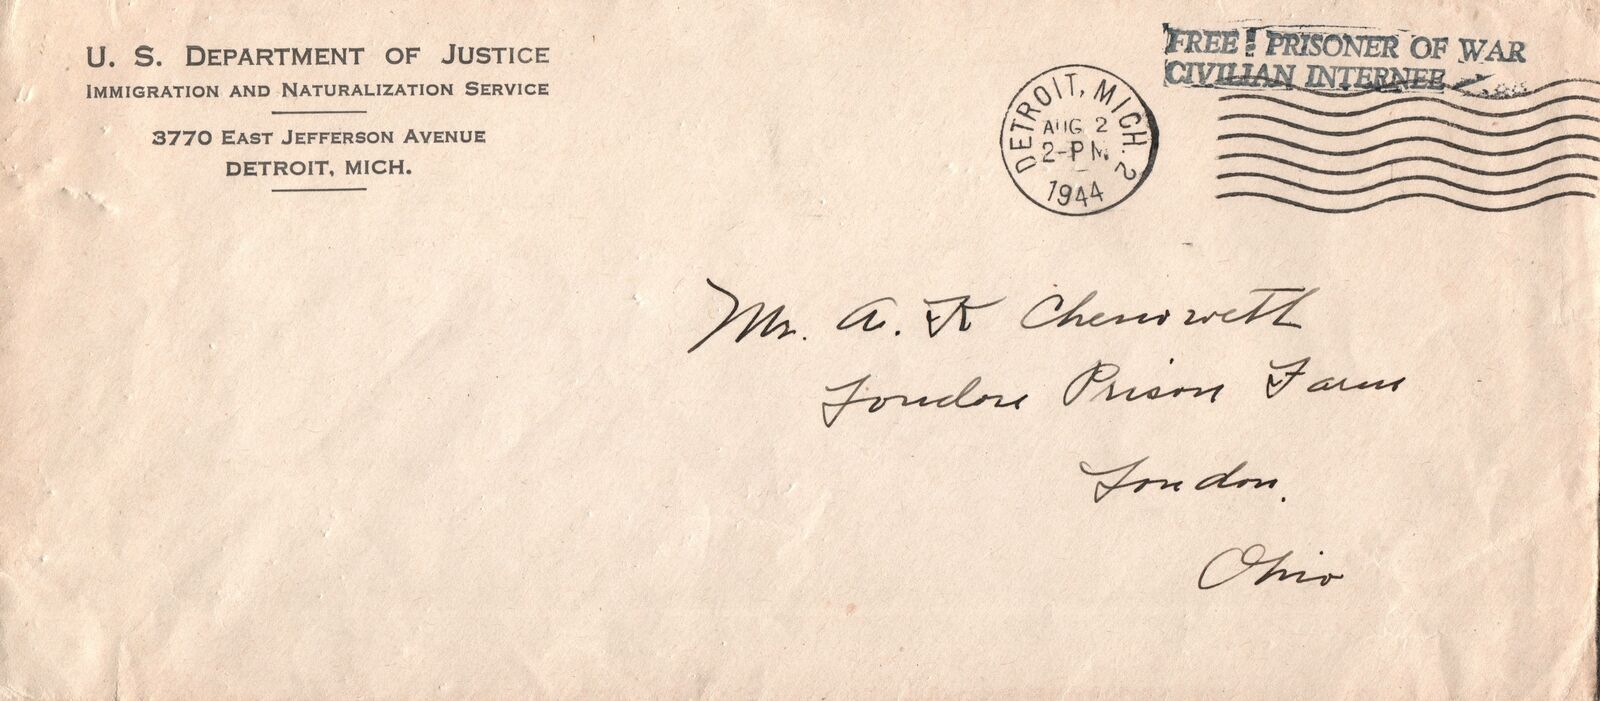 U. S. DEPARTMENT OF JUSTICE
IMMIGRATION AND NATURALIZATION SERVICE
3770 EAST JEFFERSON AVENUE
DETROIT, MICH.
FREE! PRISONER OF WAR
CIVILIAN INTERNEE
DETROIT, MICH. 2
AUG 2
2-PM
1944
Mr. A. K Chenoweth
London Prison Farm
London,
Ohio